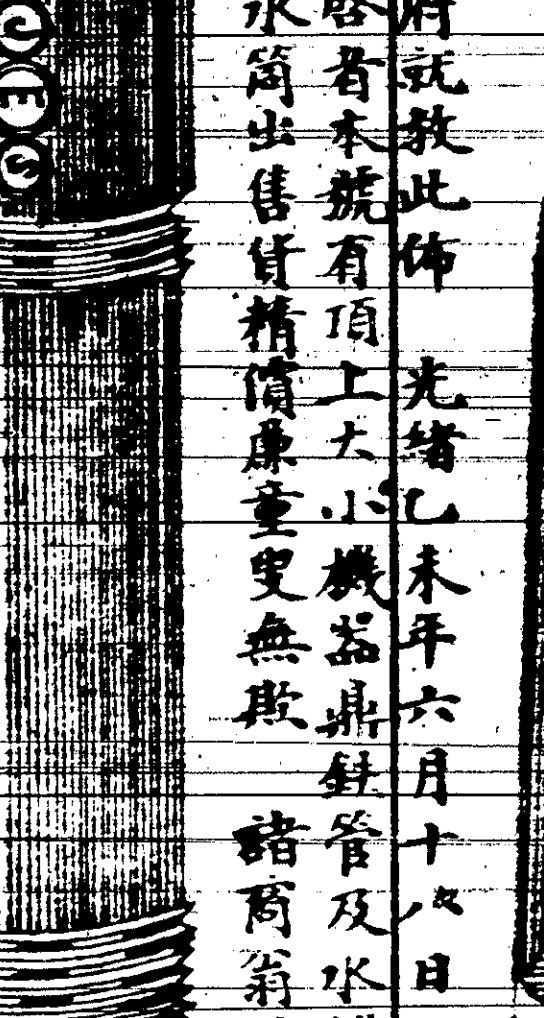 府就教此佈 光緒乙未年六月十八日
啓者本號有頂上大小機器鼎鉡管及水
水筒出售貨精價廉童叟無欺 諸商翁